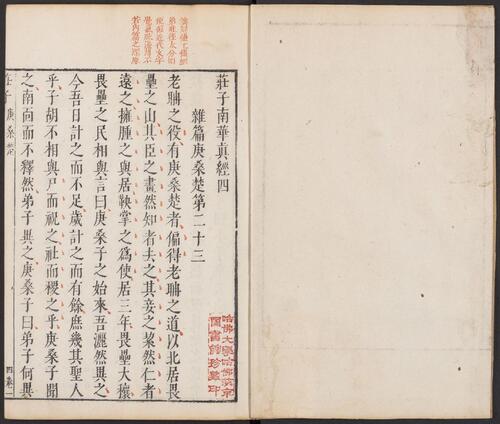 莊子南華真經四
雜篇庚桑楚第二十三
老聃之役有庚桑楚者偏得老聃之道以北居畏
壘之山其臣之畫然知者去之其妾之絜然仁者
遠之擁腫之與居鞅掌之為使居三年畏壘大穰
畏壘之民相與言曰庚桑子之始來吾灑然異之
今吾日計之而不足歲計之而有餘庶幾其聖人
乎子胡不相與尸而祝之社而稷之乎庚桑子聞
之南面而不釋然弟子異之庚桑子曰弟子何異
莊子 庚桑楚
四卷一
哈佛大學哈佛燕京
圖書館珍藏印